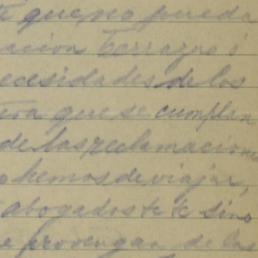 que no pueda
ación Torrazno ó
ecesidades de los
que se cumplan
de las reclamacione
hemos de viajar,
abogados te te sino
e provengan de las